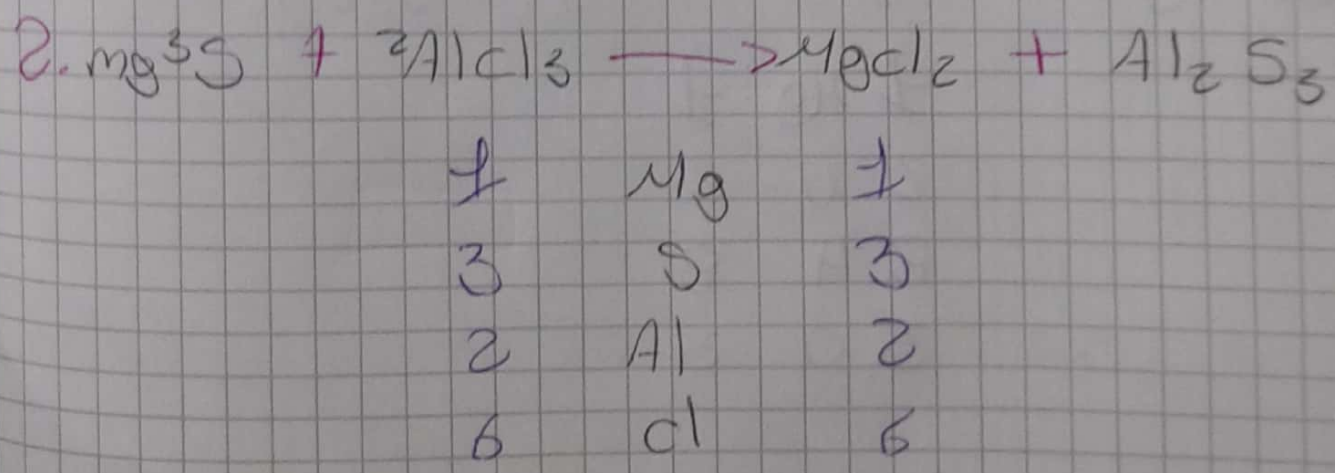 2. mg³S + ²AlCl₃ ⟶ MgCl₂ + Al₂S₃
1 Mg 1
3 S 3
2 Al 2
6 Cl 6